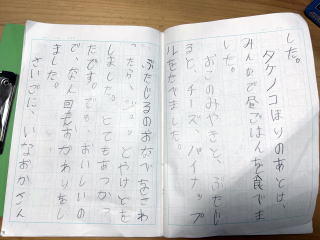 した。
タケノコほりのあとは、
みんなで昼ごはんを食べま
した。
おこのみやきと、ぶたじ
ると、チーズ、パイナップ
ルをたべました。
ぶたじるのおなべをさわ
ったら、ジュッとやけどを
しました。とてもあつかっ
たです。でも、おいしいの
で、なん回もおかわりをし
ました。
さいごに、いなおかさん